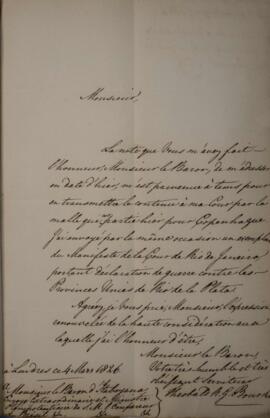 Monsieur,
La note que Vous m'avez fait
l'honneur, Monsieur le Baron, de m'adresser
en date d'hier, m'est parvenue à tems pour
en transmettre le contenu à ma Cour par la
malle qui partit hier pour Copenhague
J'ai envoyé par la même occasion un exemplaire
du Manifeste de la Cour de Rio de Janeiro,
portant déclaration de guerre contre les
Provinces Unies de Rio de la Plata.
Agréez, je Vous prie, Monsieur, l'expression
renouvelée de la haute considération avec
laquelle j'ai l'honneur d'être,
Monsieur le Baron,
Votre très humble et très
obéissant Serviteur
à Londres ce 4 Mars 1826.
A Monsieur le Baron d'Itabayana
Envoyé Extraordinaire et Ministre
Plénipotentiaire de S. M. l'Empereur